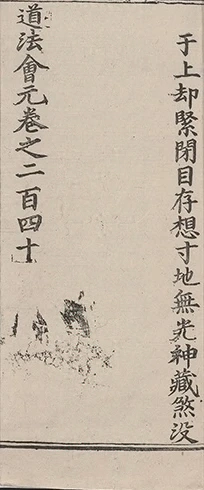 于上却緊閉目存想寸地無光神藏煞没
道法會元卷之二百四十